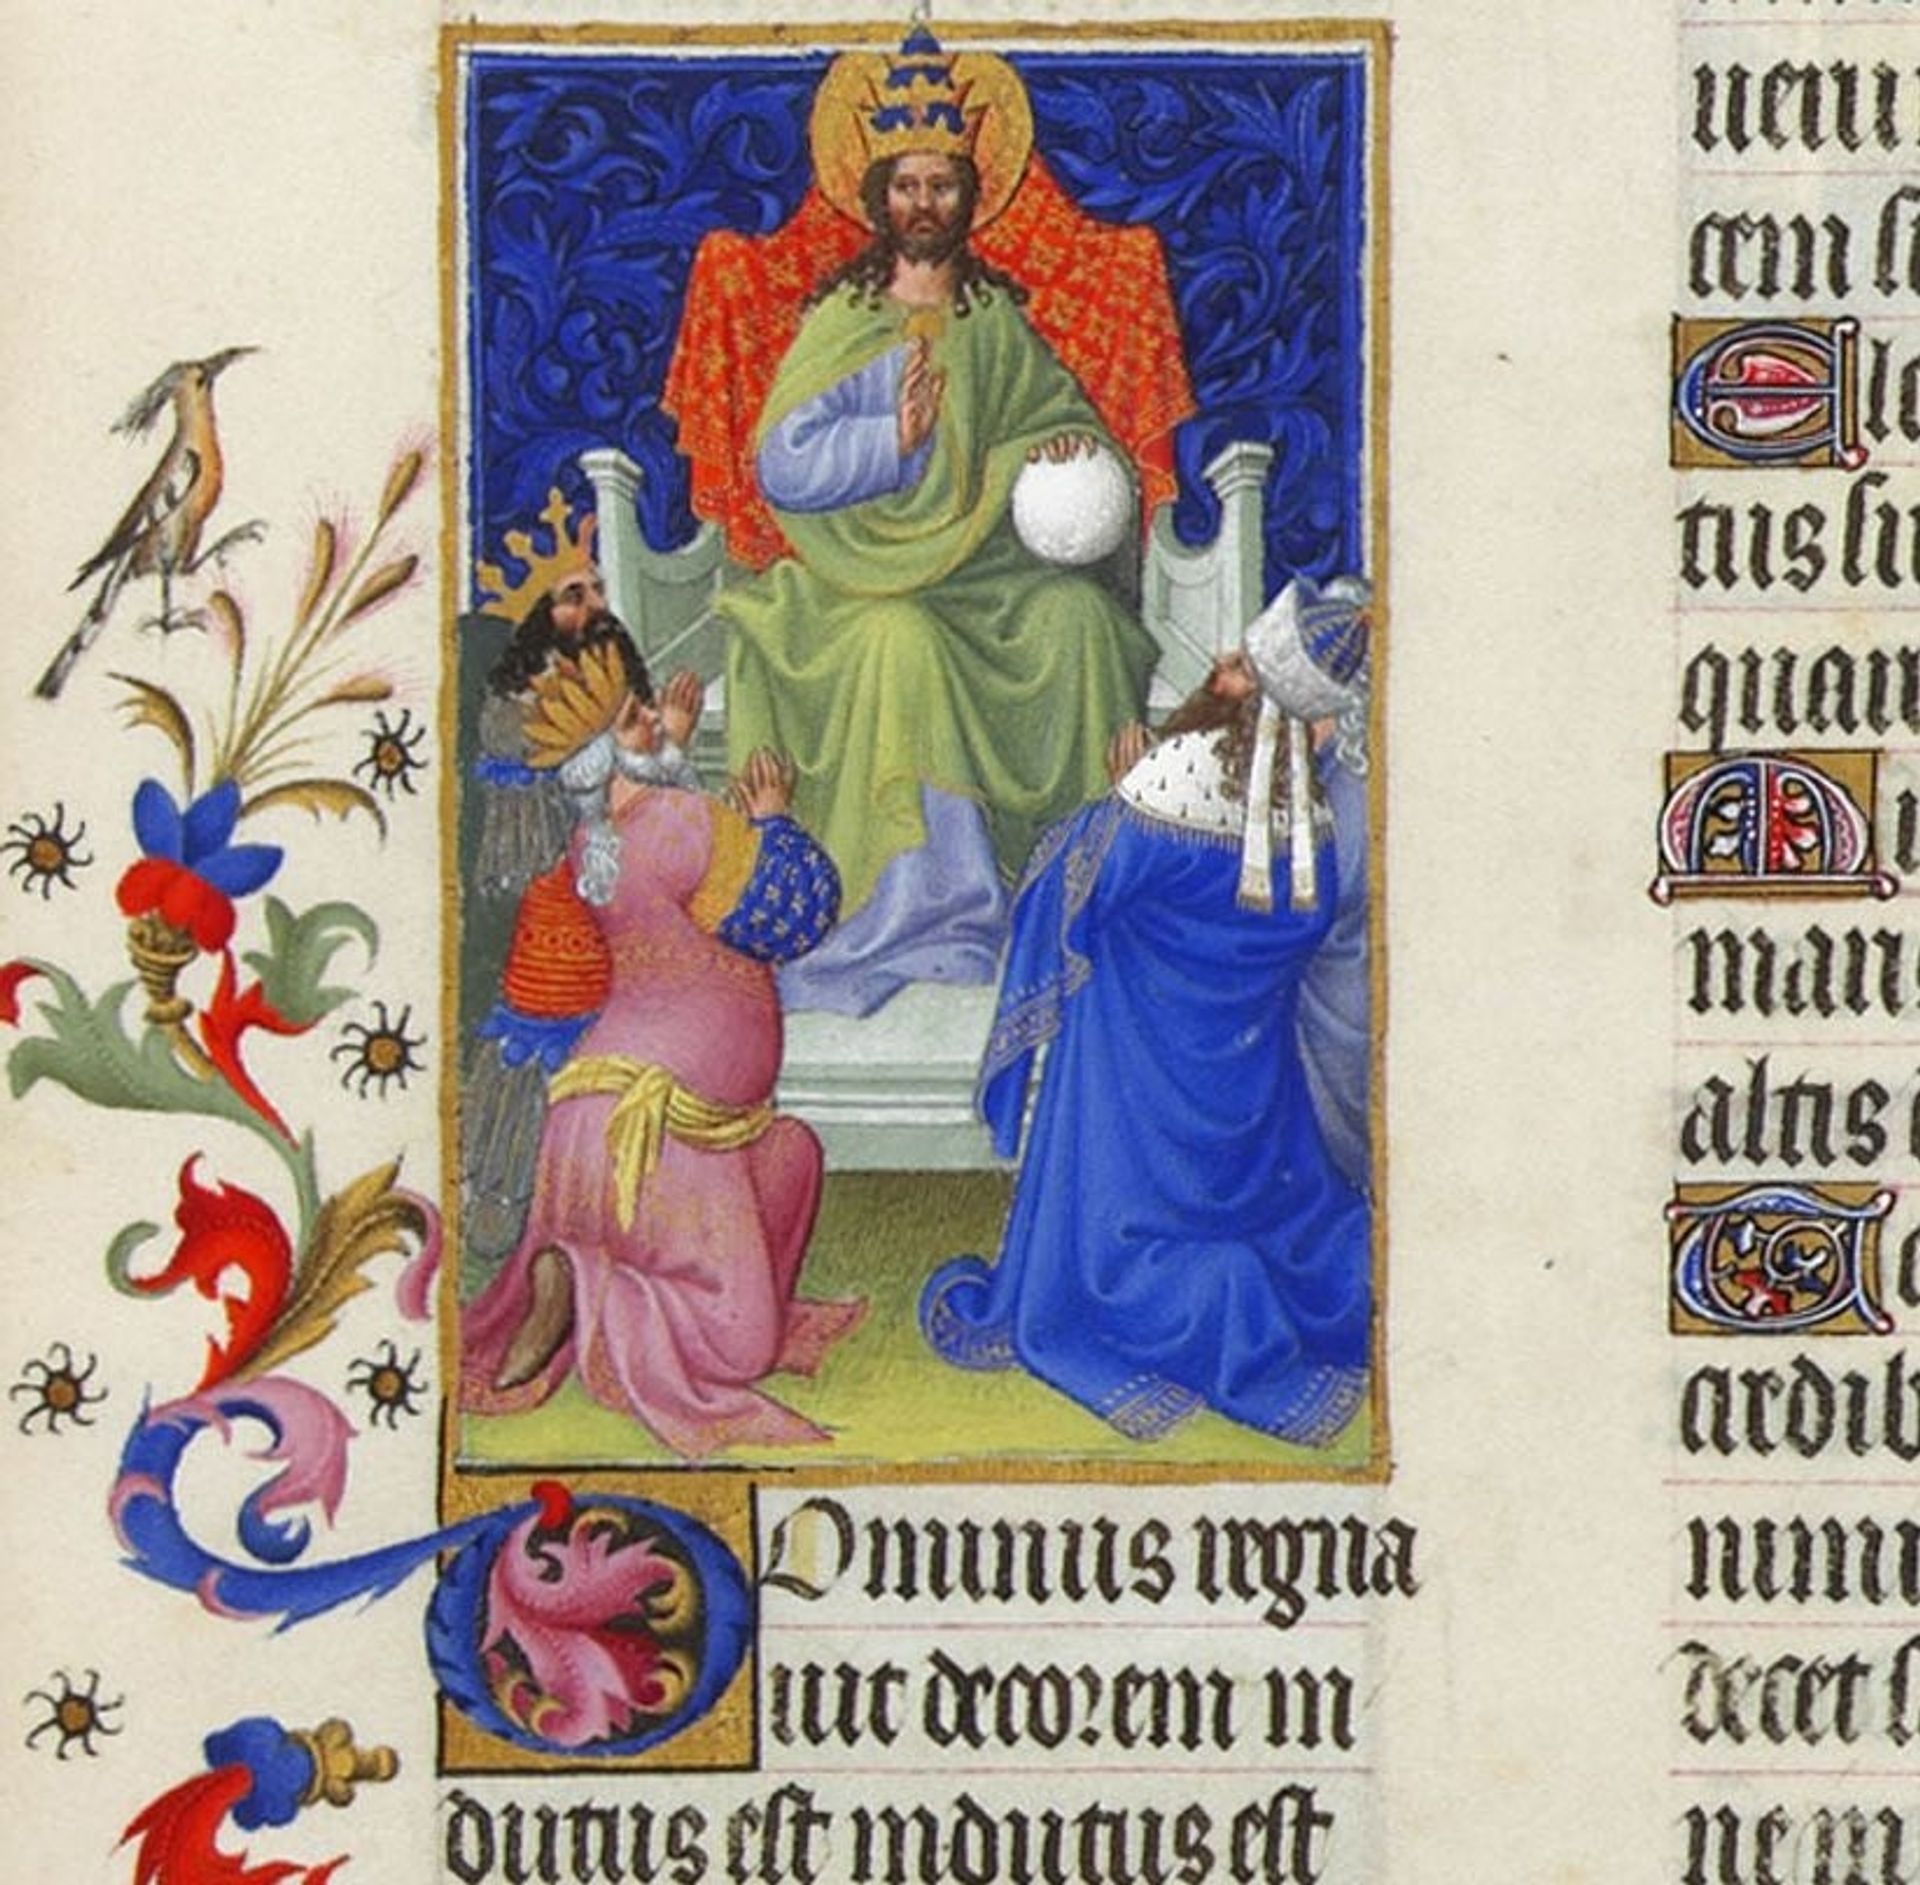 Dominus regna
uit decorem in
dutus est indutus est
ueni
cem su
Ele
tus su
quam
Mi
mans
altis d
Te
ardib
nimi
decet
nem